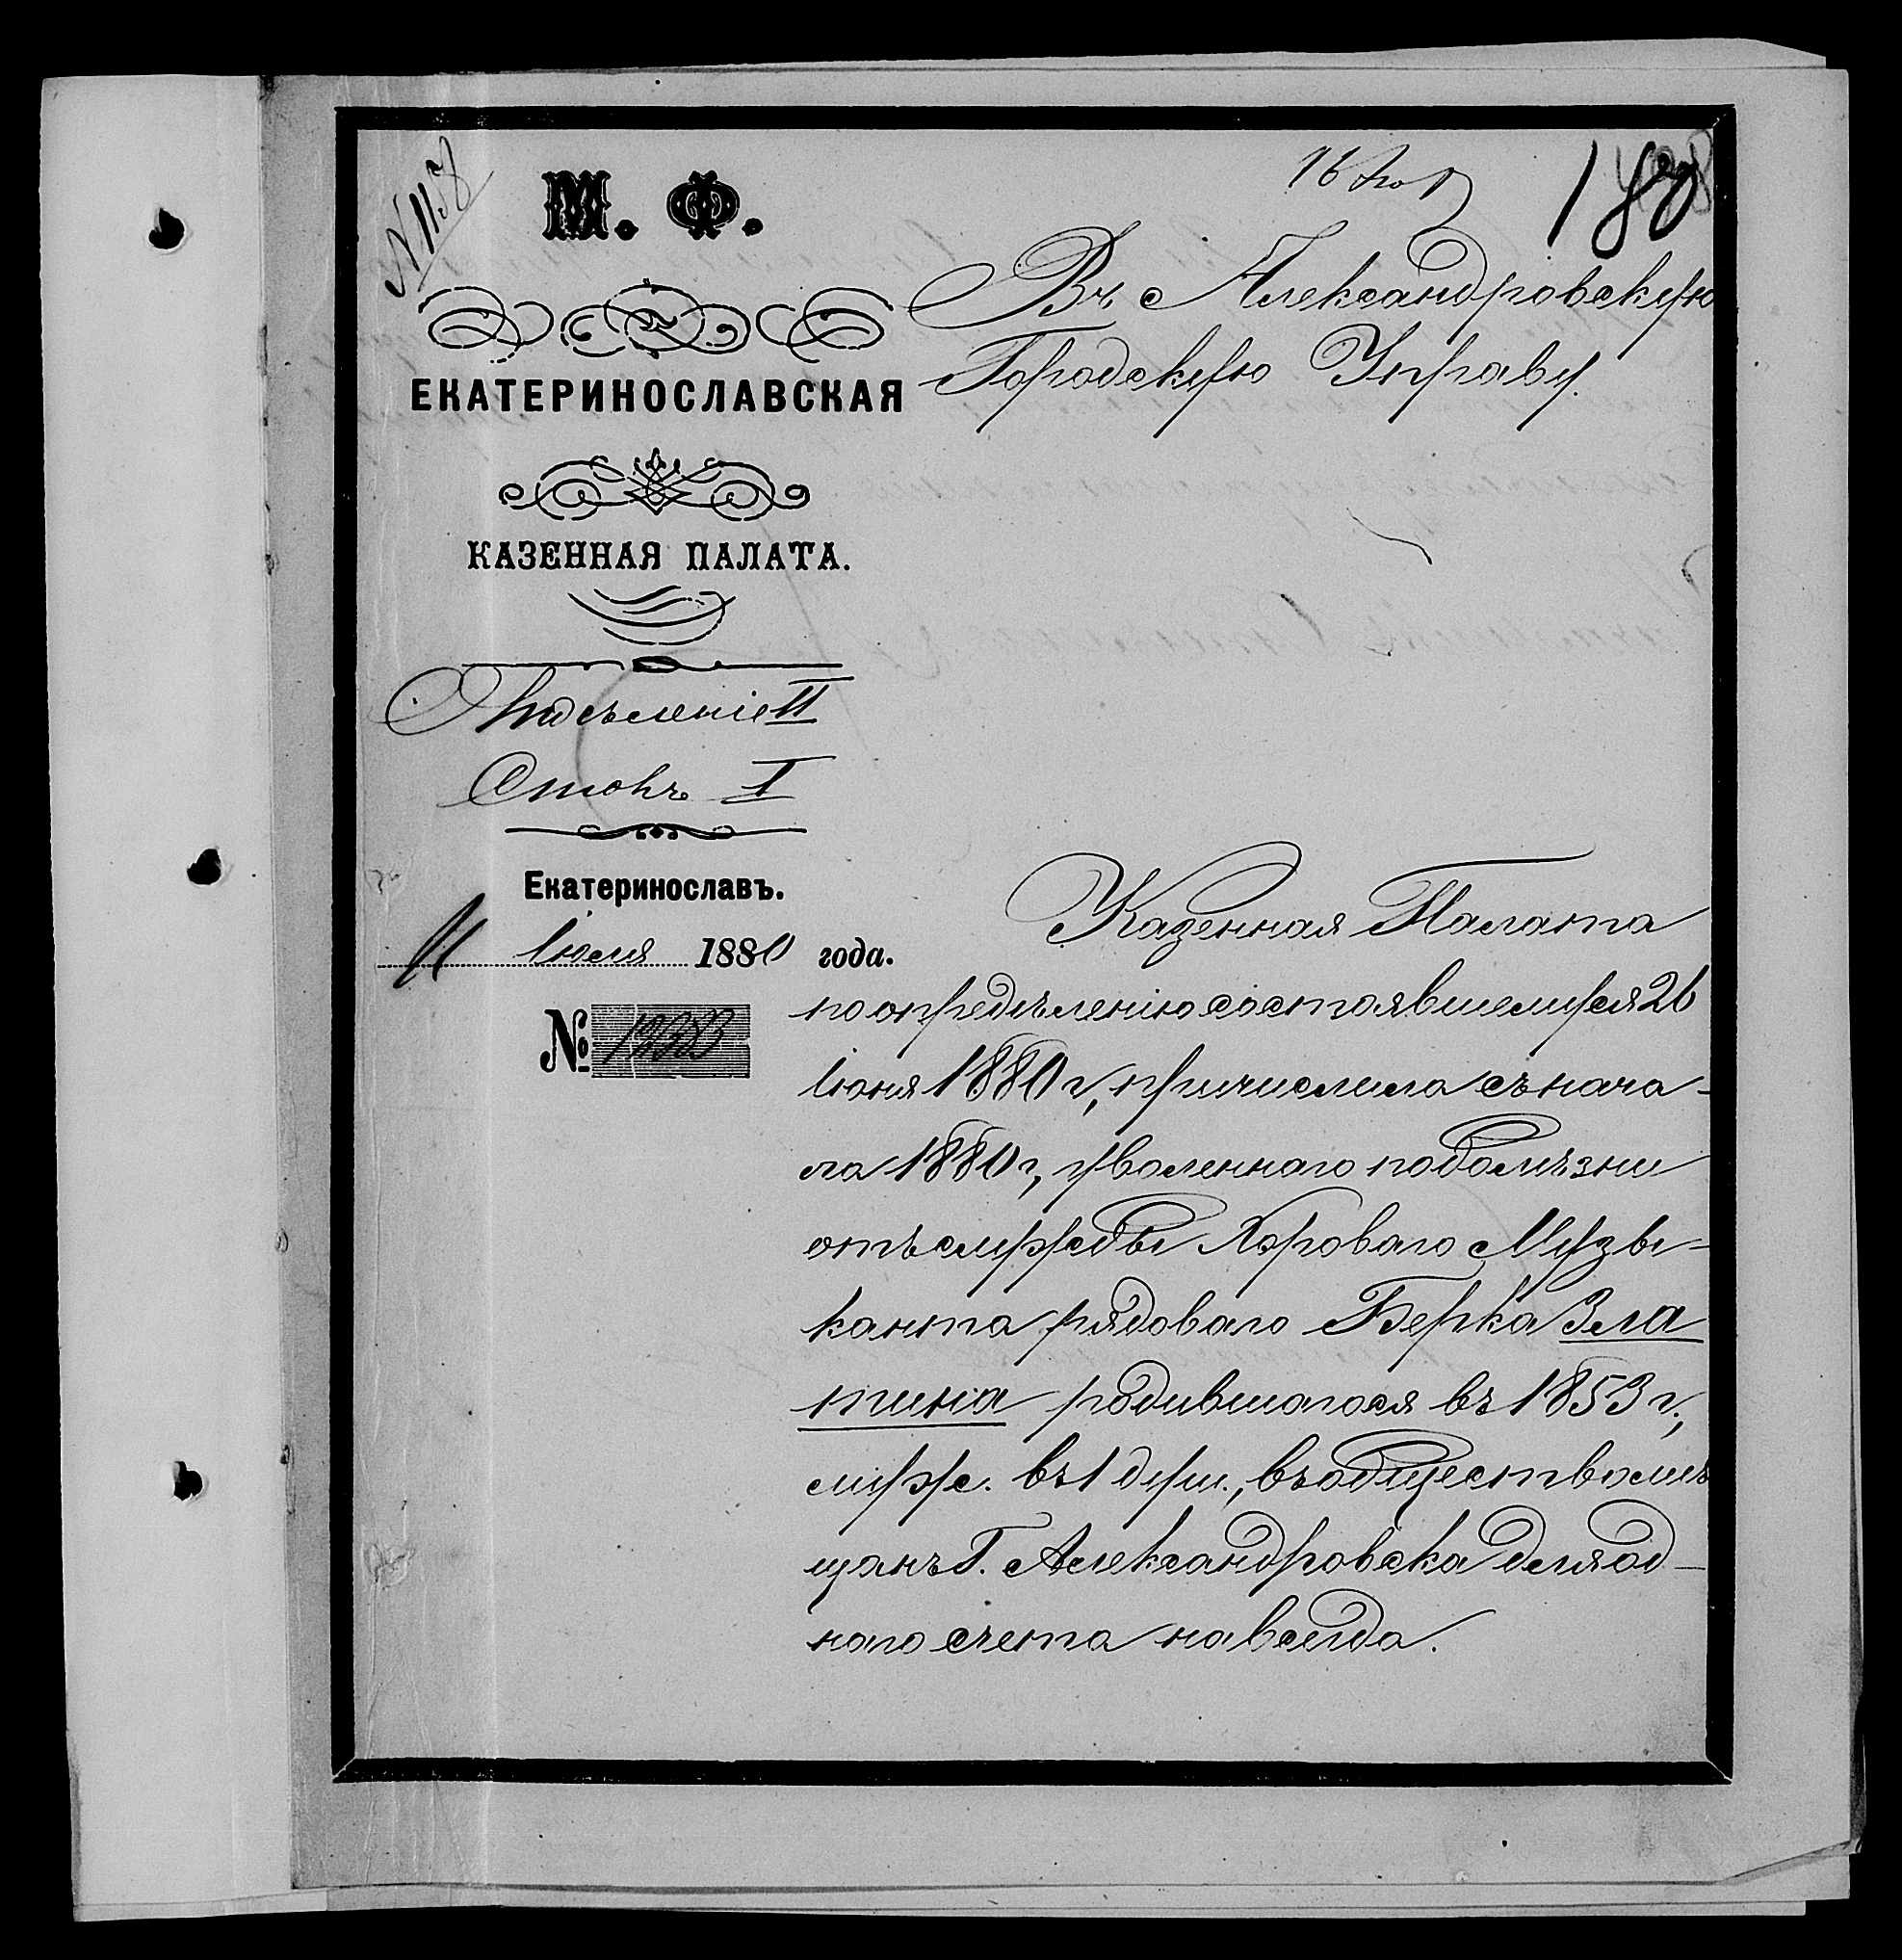 N 1158
М. Ф.
ЕКАТЕРИНОСЛАВСКАЯ
КАЗЕННАЯ ПАЛАТА.
Отдѣленіе II
Столъ I
Екатеринославъ.
11 Іюля 1880 года.
№ 12383
16
Въ Александровскую
Городскую Управу.
Казенная Палата
по опредѣленію состоявшемуся 26
Іюня 1880 г, причислила съ нача-
ла 1880 г, уволеннаго по болѣзни
отъ службы Хороваго Музы-
канта рядоваго Берка Зла
тина родившагося въ 1853 г.,
муж. въ 1 душ., въ общество мѣ
щанъ Г. Александровска для од-
ного счета навсегда.